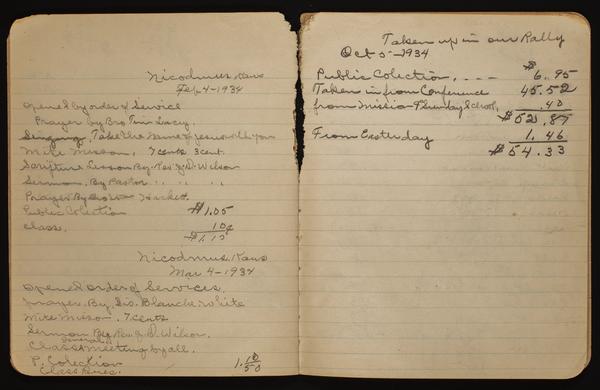 Nicodmus, Kans
Feb. 4-1934
opened by order of Service
Prayer by Bro Tim Lacy.
Singing, Take the Name of Jesus with you
Mite Misson, 7 cents 3 cent.
Scripture Lesson By. Rev. J. D. Wilson
Sermon, By Pastor " " " "
Prayer By Hackett.
Public Colection $1.05
Class, 10¢
Nicodmus, Kans
Mar 4-1934
opened order of Services.
prayer. By, Sis. Blanche White
Mite Misson. 7 cents
Sermon By Rev. J. D. Wilson.
General
Class Meeting by all.
P. Colection 1.10
Class Dues. 50
Taken up in our Rally
Oct 5-1934
Public Colection, - - - $6.95
Taken in from Conference 45.52
from Mission Thursday School, .40
$52.87
From Yesterday 1.46
$54.33